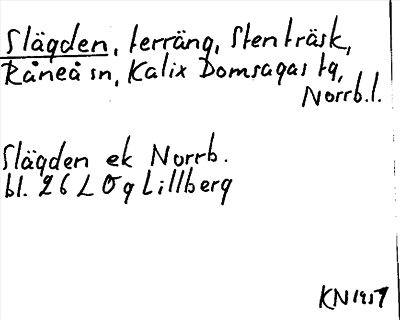 Slägden, terräng, Stenträsk,
Råneå sn, Kalix Domsagas tg,
Norrb.l.
Slägden ek Norrb.
bl. 26 L Ög Lillberg
KN 1957